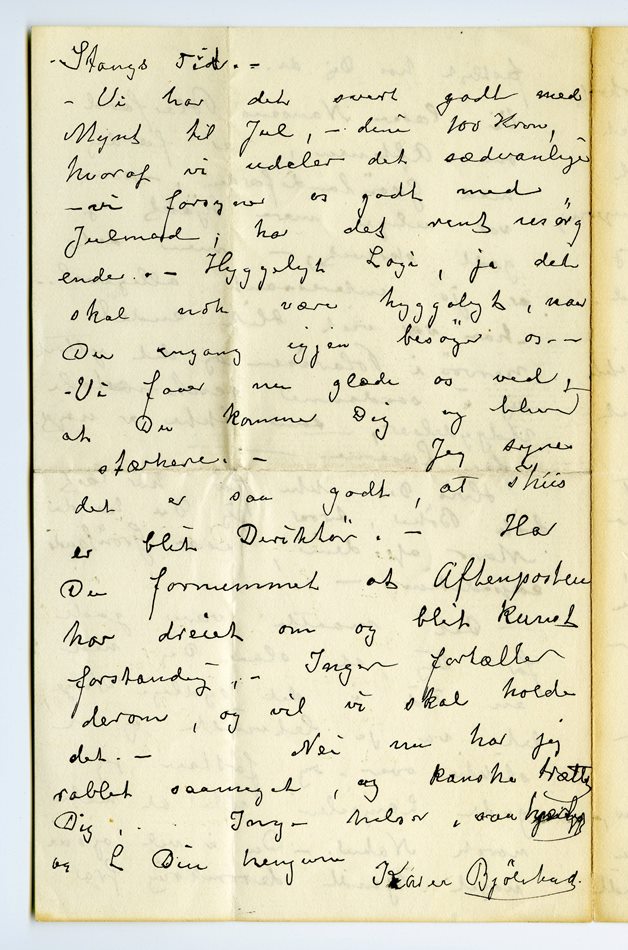 Stangs Tid. –
– Vi har det svert godt med
Mynt til Jul, – dine 100 Kron,
hvoraf vi udeler det sædvanlige
– vi forsyner os godt med
Julemad; har det rent
ender. – Hyggeligt Logi, ja det
skal nok være hyggeligt, naar
Du engang igjen besøger os – –
– Vi faar nu glæde os ved,
at Du kommer Dig og bliver
stærkere. – Jeg synes
det er saa godt, at Thiis
er blit Diriktör. – Har
Du fornemmet at Aftenposten
har dreiet om og blit kunst
forstandig, – Inger fortæller
derom, og vil vi skal holde
det. – Nei nu har jeg
rablet saameget, og kanske trættet
Dig, . . Inger hilser, saa
og Din hengivne
Karen Bjölstad.